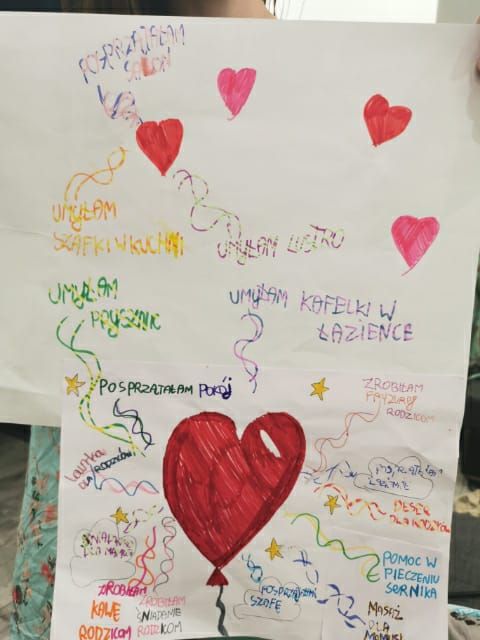 POSPRZĄTAŁAM
SALON
UMYŁAM
SZAFKI W KUCHNI
UMYŁAM LUSTRO
UMYŁAM
PRYSZNIC
UMYŁAM KAFELKI W
ŁAZIENCE
POSPRZĄTAŁAM POKÓJ
ZROBIŁAM
FRYZURĘ
RODZICOM
laurka
DLA RODZICÓW
DESER
DLA RODZICÓW
DLA MAMY
POMOC W
PIECZENIU
SERNIKA
ZROBIŁAM
KAWĘ
RODZICOM
ZROBIŁAM
ŚNIADANIE
RODZICOM
POSPRZĄTAŁAM
SZAFĘ
MASAŻ
DLA
MAMUSI